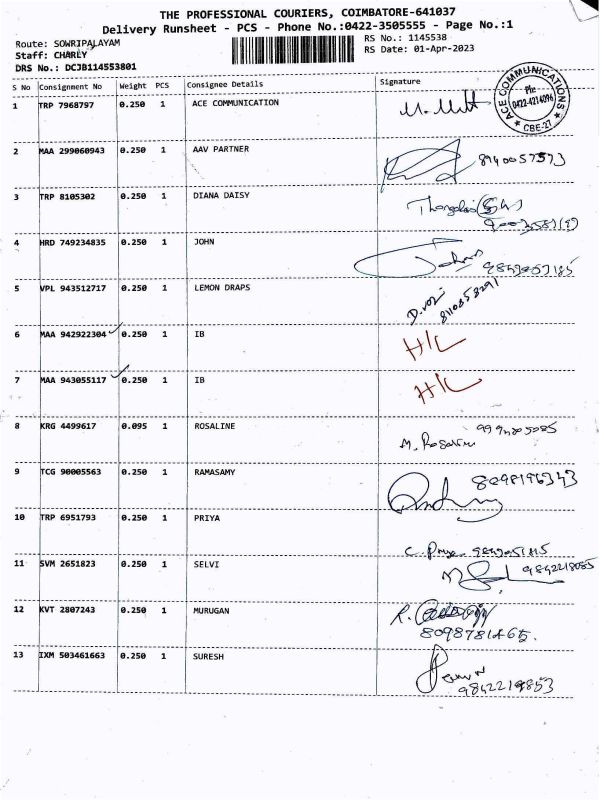 THE PROFESSIONAL COURIERS, COIMBATORE-641037
Delivery Runsheet - PCS - Phone No.:0422-3505555 - Page No.:1
Route: SOWRIPALAYAM
RS No.: 1145538
Staff: CHARLY
RS Date: 01-Apr-2023
DRS No.: DCJB114553801
S No Consignment No Weight PCS Consignee Details Signature
1 TRP 7968797 0.250 1 ACE COMMUNICATION
ACE COMMUNICATIONS
Ph:
0422-4214096
* CBE-27 *
2 MAA 299060943 0.250 1 AAV PARTNER
3 TRP 8105302 0.250 1 DIANA DAISY
4 HRD 749234835 0.250 1 JOHN
5 VPL 943512717 0.250 1 LEMON DRAPS
6 MAA 942922304 0.250 1 IB H/C
7 MAA 943055117 0.250 1 IB H/C
8 KRG 4499617 0.095 1 ROSALINE
9 TCG 90005563 0.250 1 RAMASAMY
8098196343
10 TRP 6951793 0.250 1 PRIYA
C. Priya
11 SVM 2651823 0.250 1 SELVI
9842218085
12 KVT 2807243 0.250 1 MURUGAN
8098781465.
13 IXM 503461663 0.250 1 SURESH
9842219853